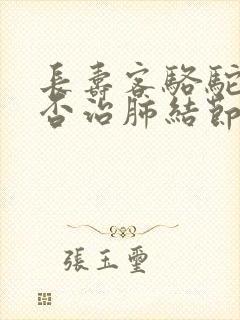 長壽客駱駝
否治肺結節
張玉璽